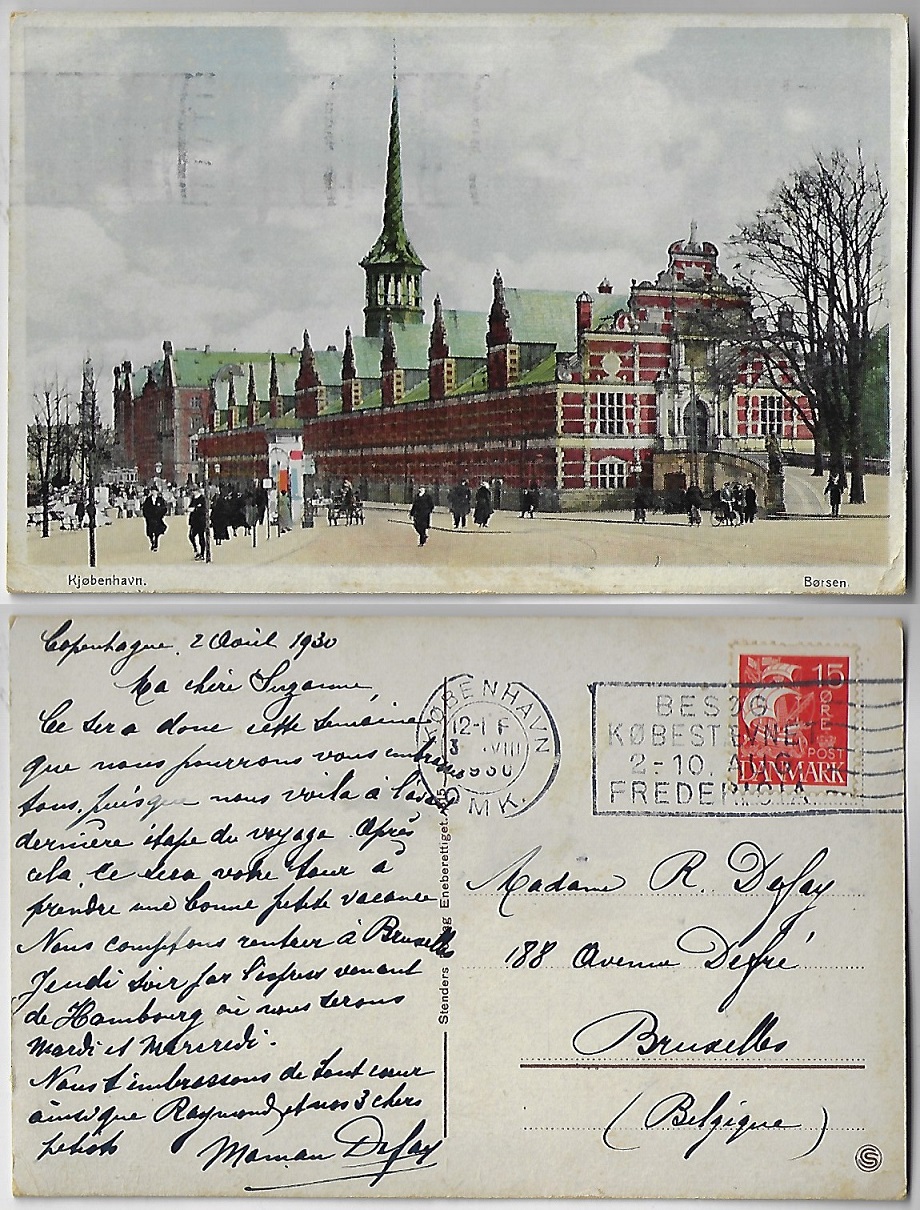 Kjøbenhavn.
Børsen.
Copenhague, 2 Août 1930
Ma chère Suzanne,
Ce sera donc cette semaine
que nous pourrons vous embrasser
tous, puisque nous voilà à l'avant
dernière étape du voyage. Après
cela, ce sera votre tour à
prendre une bonne petite vacance
Nous comptons rentrer à Bruxelles
Jeudi soir par l'express venant
de Hambourg où nous serons
Mardi et Mercredi.
Nous t'embrassons de tout cœur
ainsi que Raymond et nos 3 chers
petiots
Maman Defay
Stenders Eneberettiget.
KØBENHAVN
12-1 F
3 VIII
1930
OMK.
BESØG
KØBESTÆVNET
2-10. AUG.
FREDERICIA
15
ØRE
POST
DANMARK
Madame R. Defay
188 Avenue Defré
Bruxelles
(Belgique)
S